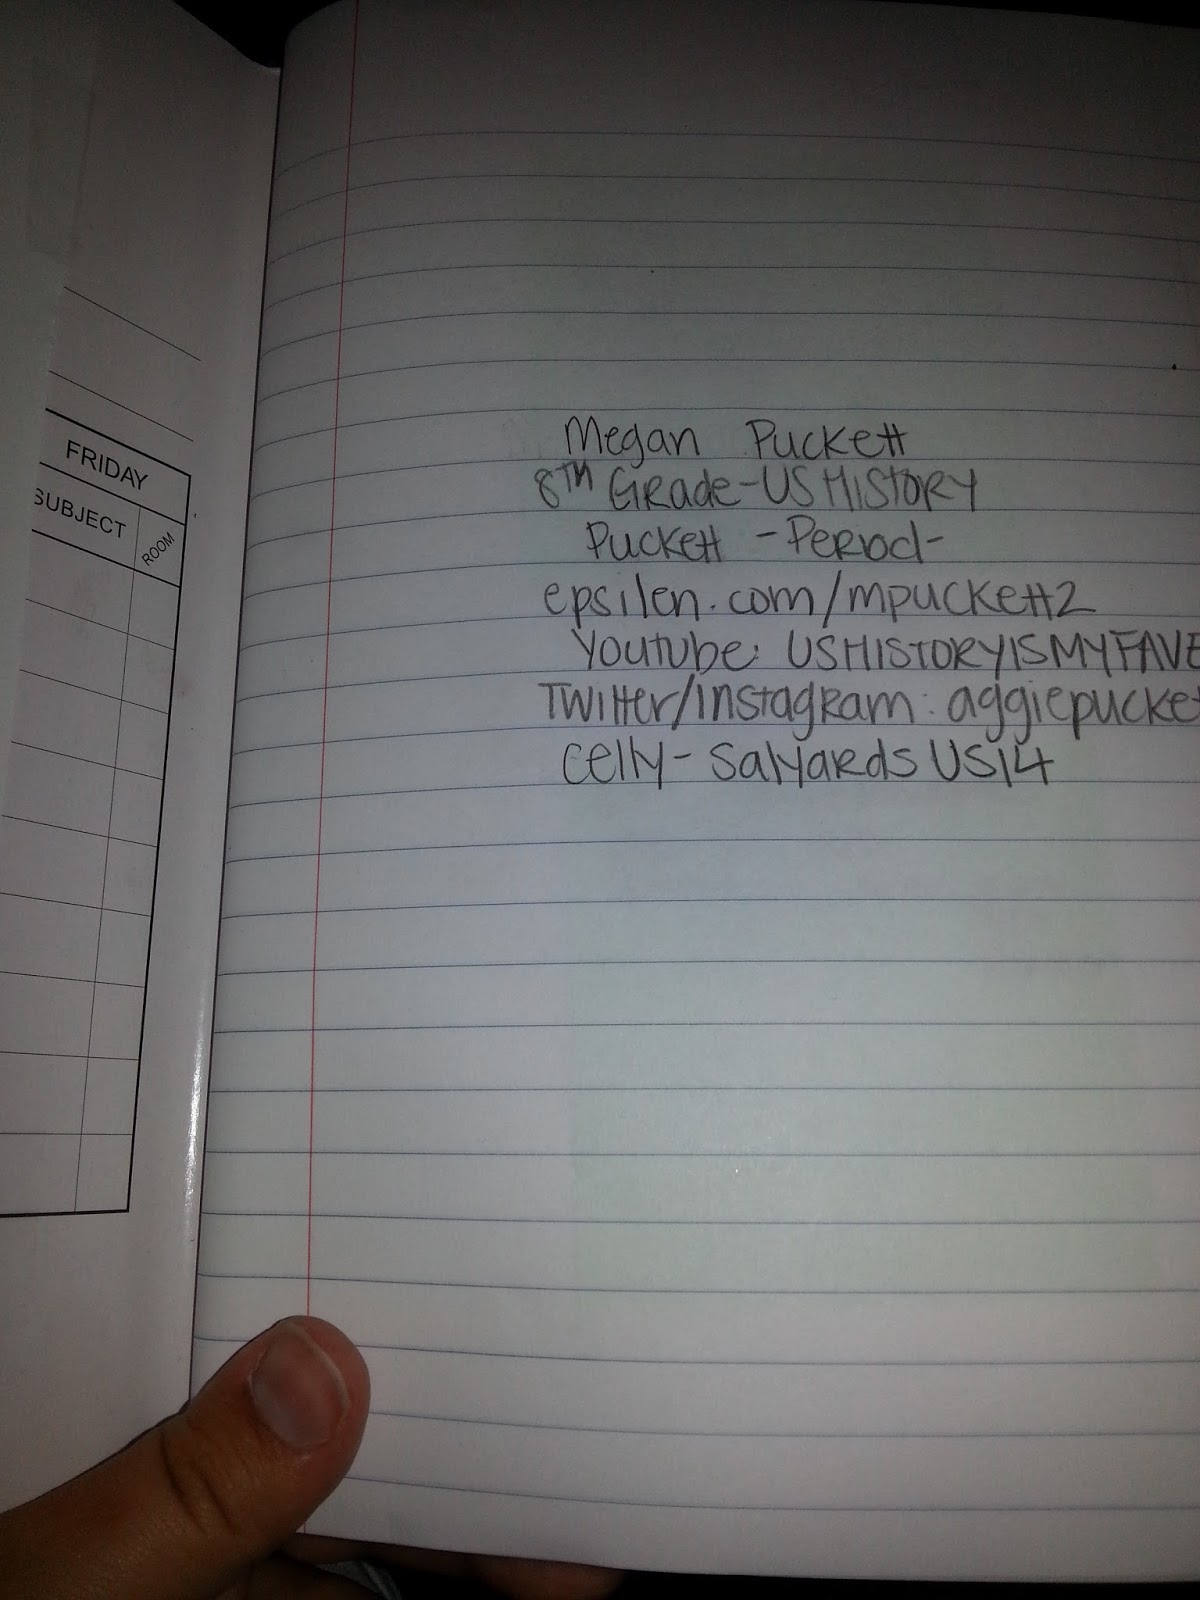 FRIDAY
SUBJECT
ROOM
Megan Puckett
8TH Grade-US HISTORY
Puckett -Period-
epsilen.com/mpuckett2
Youtube: USHISTORYISMYFAVE
Twitter/Instagram: aggiepucke
Celly- Salyards US14